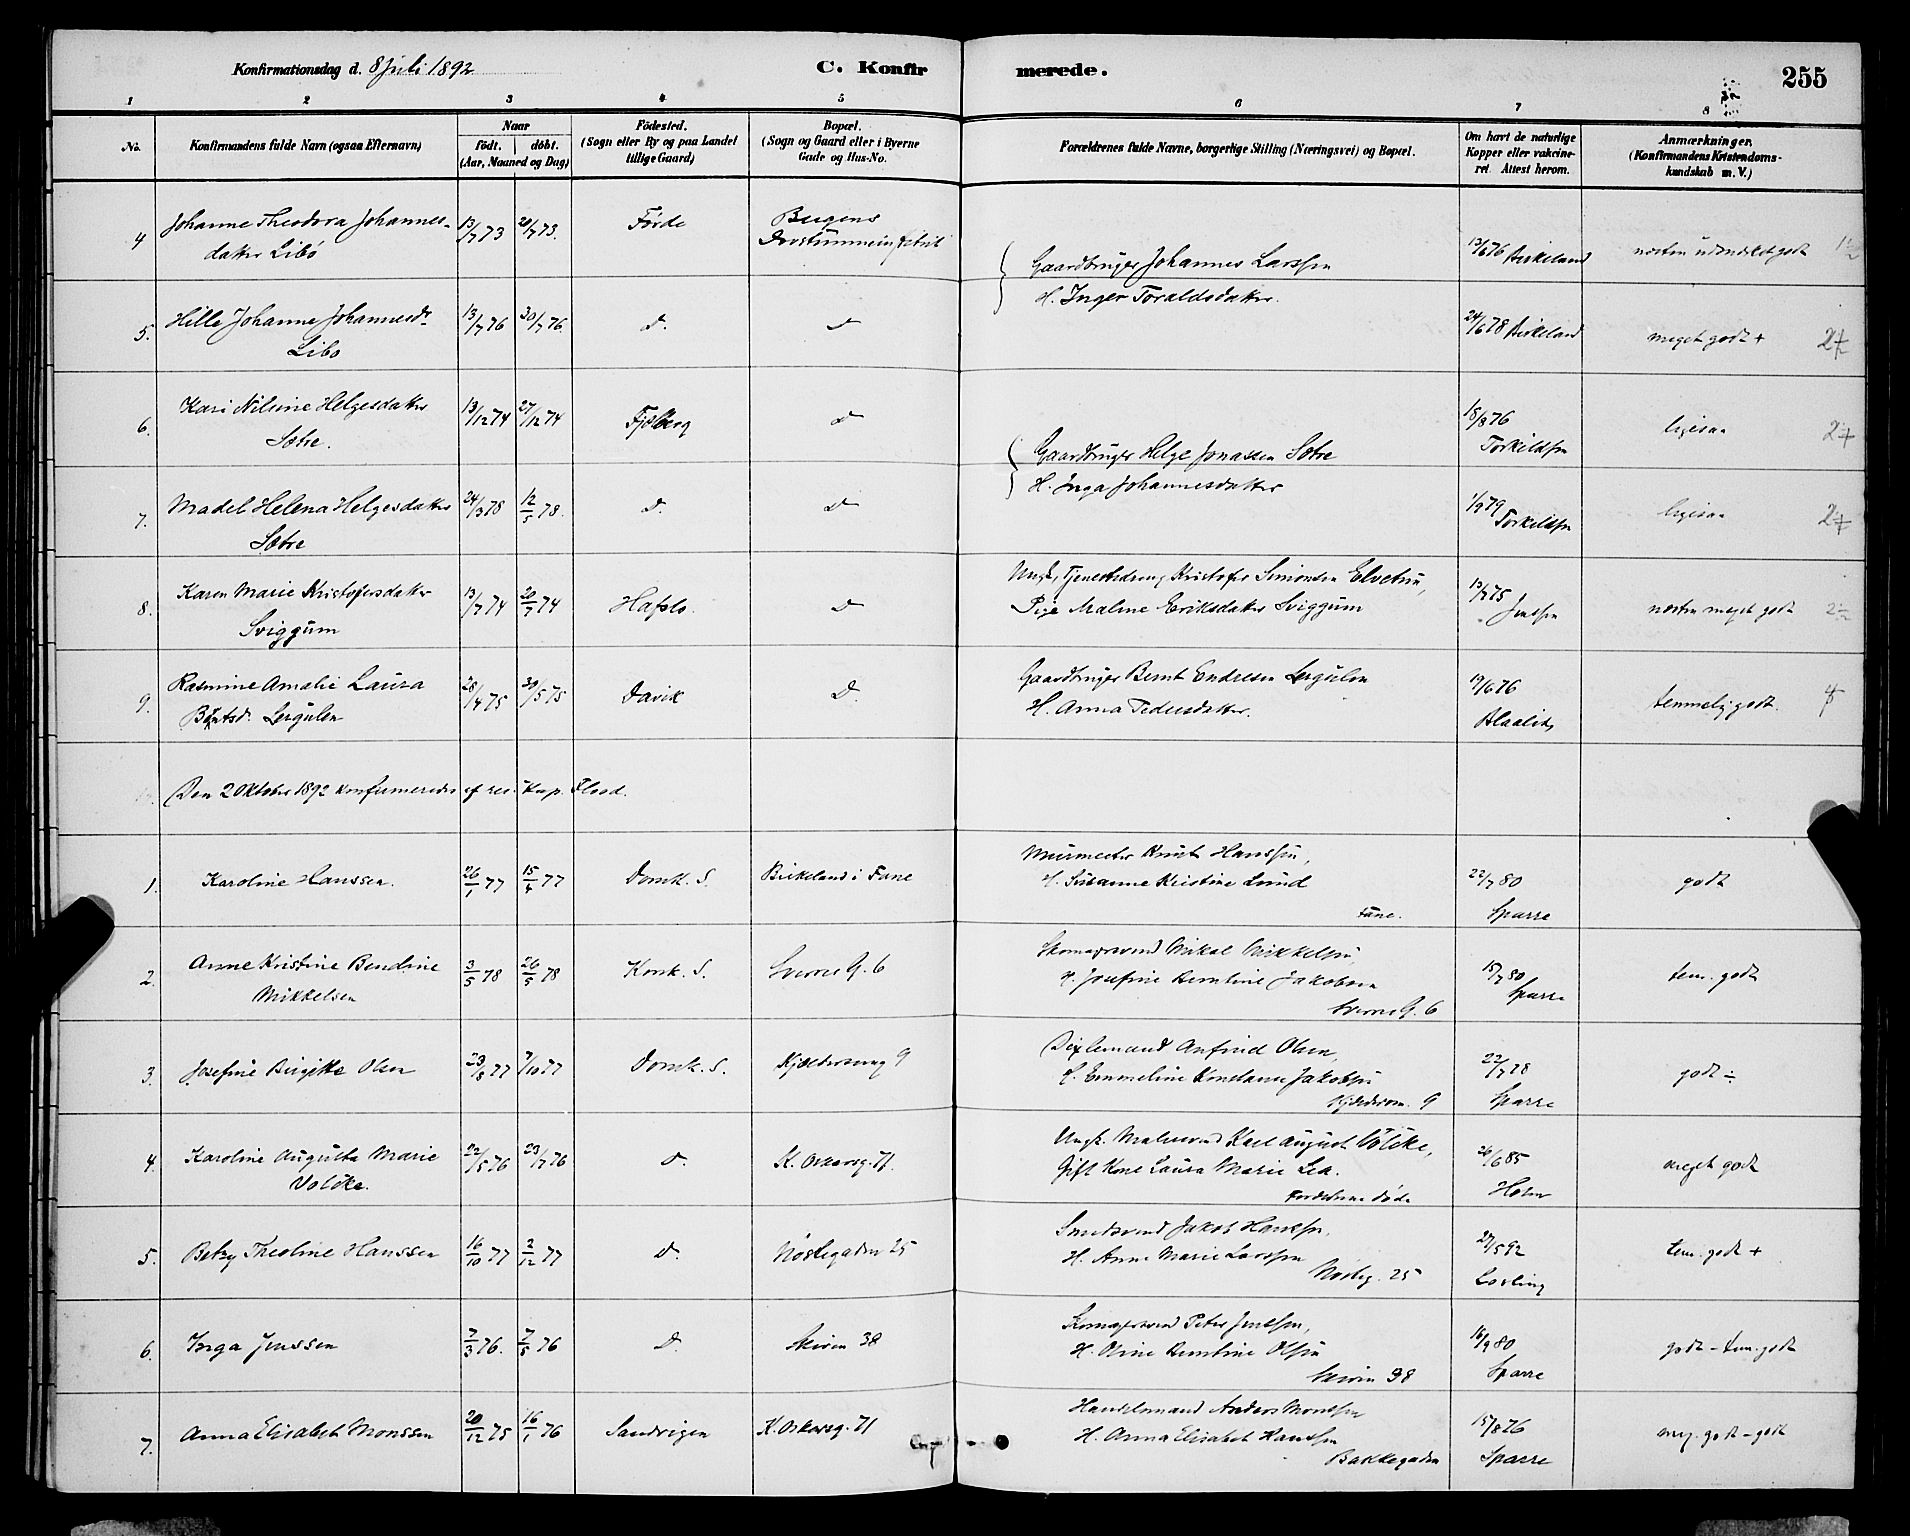 Konfirmationsdag d. 8 Juli 1892
C. Konfir merede. 255
1 2 3 4 5 6 7 8
No. Konfirmandens fulde Navn (ogsaa Efternavn) Naar født. døbt. (Aar, Maaned og Dag) Födested. (Sogn eller By og paa Landet tillige Gaard) Bopæl. (Sogn og Gaard eller i Byerne Gade og Hus-No. Forældrenes fulde Navne, borgerlige Stilling (Næringsvei) og Bopæl. Om havt de naturlige Kopper eller vakcineret. Attest herom. Anmærkninger. (Konfirmandens Kristendomskundskab m. V.)
4 Johanne Theodora Johannes- 13/7 73 20/7 73. Förde Bergens
datter Libø Døvstummeinstitut
Gaardbruger Johannes Larssen 13/6 76 Birkeland næsten udmærket godt
H. Inger Toraldsdatter.
5. Hille Johanne Johannesd. 13/7 76 30/7 76. D. D 24/6 78 Birkeland meget godt +
Libø
6. Kari Nilsine Helgesdatter 13/12 74 27/12 74 Fjelberg D 18/8 76 ligesaa
Sætre. Torkildsen
Gaardbruger Helge Jonassen Sætre
H. Inga Johannesdatter
7. Madel Helena Helgesdatter 24/3 78 12/5 78. D. D 1/9 79 Torkildsen ligesaa
Sætre
8. Karen Marie Kristofersdatter 13/7 74 20/7 74 Hafslo. D Ungk. Tjenestedreng Kristofer Simonsen Elvetun, 13/7 75 næsten meget godt
Sviggum Pige Malene Eriksdatter Sviggum Jenssen
9. Rasmine Amalie Laura 28/4 75 30/5 75 Davik D. Gaardbruger Bernt Endresen Lergulen 19/6 76 temmelig godt.
Berntsd. Lergulen H. Anna Pedersdatter.
Den 2 Oktober 1892 konfirmeredes af res. Kap. Flood.
1. Karoline Hanssen. 26/1 77 15/4 77 Domk. S. Birkeland i Fane Murmester Knut Hanssen, 22/7 80 godt
H. Susanne Kristine Lund
Fane. Sparre
2. Anne Kristine Bendine 3/5 78 26/5 78 Korsk. S. Sverres G. 6 Skomagersvend Mikal Mikkelsen, 15/7 80 tem. godt
Mikkelsen H. Josefine Berntine Jakobsen Sparre
Sverres G. 6
3. Josefine Birgitte Olsen 23/8 77 7/10 77 Domk. S. 9 Anfind Olsen, 22/7 78 godt ÷
H. Emmeline Konstanse Jakobsen
9 Sparre
4. Karoline Augusta Marie 22/5 76 23/7 76 D. K. Oskarsg. 71. Ungk. Malersvend Karl August Völcke, 26/6 85 meget godt
Völcke. Gift Kone Laura Marie Lea.
Forældrene døde Holm
5. Betzy Theoline Hanssen 16/10 77 2/12 77 D. Nöstegaden 25 Smedsvend Jakob Hanssen, 27/5 92 tem. godt +
H. Anne Marie Larssen
Nösteg. 25 Lovling
6. Inga Jenssen 7/3 76. 7/5 76 D. Skiven 38 Skomagersvend Peter Jenssen, 16/9 80 godt - tem. godt
H. Oline Berntine Olsen
Skiven 38 Sparre
7. Anna Elisabet Monssen 20/12 75 16/1 76 Sandvigen K. Oskarsg. 71 Handelsmand Anders Monssen 15/8 76 meg. godt - godt
H. Anna Elisabet Hanssen
Bakkegaden Sparre